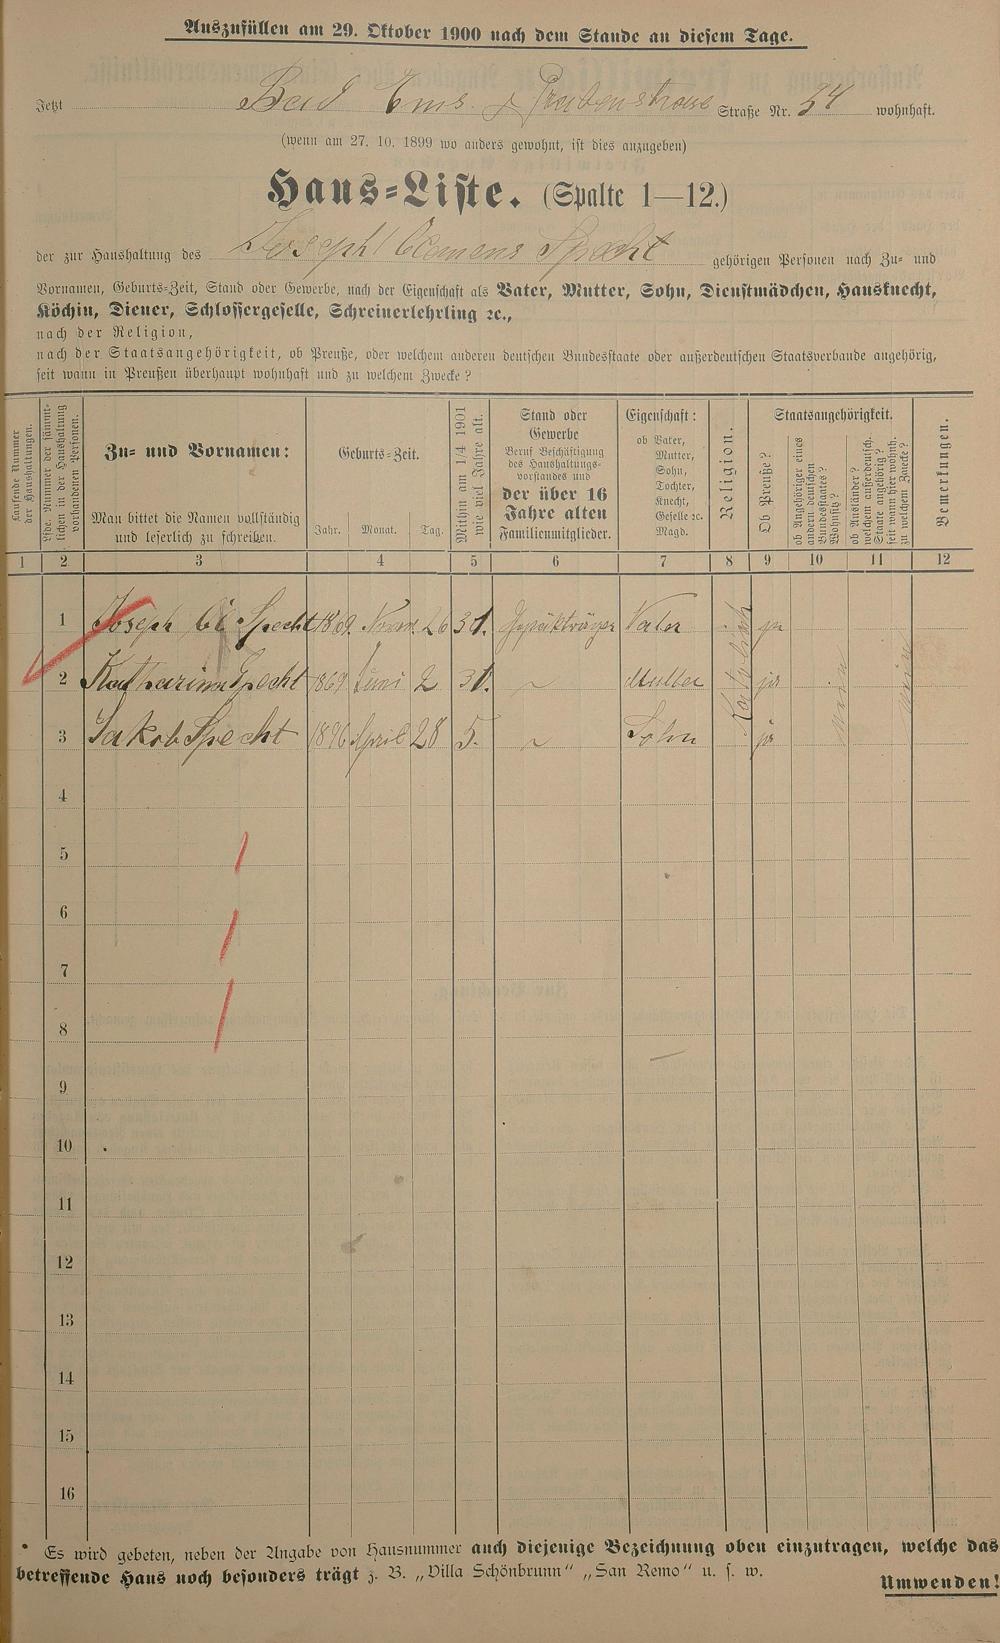 Auszufüllen am 29. Oktober 1900 nach dem Stande an diesem Tage.
Jetzt Bad Ems Straße Nr. 34 wohnhaft.
(wenn am 27. 10. 1899 wo anders gewohnt, ist dies anzugeben)
Haus-Liste. (Spalte 1—12.)
der zur Haushaltung des Joseph Clemens Specht gehörigen Personen nach Zu- und
Vornamen, Geburts-Zeit, Stand oder Gewerbe, nach der Eigenschaft als Vater, Mutter, Sohn, Dienstmädchen, Hausknecht,
Köchin, Diener, Schlossergeselle, Schreinerlehrling ꝛc.,
nach der Religion,
nach der Staatsangehörigkeit, ob Preuße, oder welchem anderen deutschen Bundesstaate oder außerdeutschen Staatsverbande angehörig,
seit wann in Preußen überhaupt wohnhaft und zu welchem Zwecke?
Laufende Nummer
der Haushaltungen.
Lfde. Nummer der sämmt-
lichen in der Haushaltung
vorhandenen Personen.
Zu- und Vornamen:
Man bittet die Namen vollständig
und leserlich zu schreiben.
Geburts-Zeit.
Jahr. Monat. Tag.
Mithin am 1/4 1901
wie viel Jahre alt.
Stand oder
Gewerbe
Beruf Beschäftigung
des Haushaltungs-
vorstandes und
der über 16
Jahre alten
Familienmitglieder.
Eigenschaft:
ob Vater,
Mutter,
Sohn,
Tochter,
Knecht,
Geselle ꝛc.
Magd.
Religion.
Staatsangehörigkeit.
Ob Preuße?
ob Angehöriger eines
andern deutschen
Bundesstaates?
Wohnsitz?
ob Ausländer?
welchem außerdeutsch.
Staate angehörig?
seit wann hier wohnh.
zu welchem Zwecke?
Bemerkungen.
1 2 3 4 5 6 7 8 9 10 11 12
1 Joseph Cl Specht 1869 Novem. 26 31. Gepäkträger Vater Katolisch ja nein nein
2 Katharina Specht 1869 Juni 2 31. ~ Mutter ja
3 Jakob Specht 1896 April 28 5. ~ Sohn ja
4
5
6
7
8
9
10
11
12
13
14
15
16
* Es wird gebeten, neben der Angabe von Hausnummer auch diejenige Bezeichnung oben einzutragen, welche das
betreffende Haus noch besonders trägt z. B. „Villa Schönbrunn“ „San Remo“ u. s. w.
Umwenden!